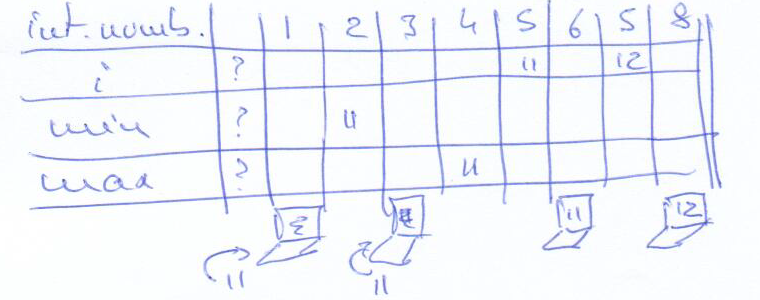 int. nomb. 1 2 3 4 5 6 5 8
i ? 11 12
min ? 11
max ? 11
11 12
11 11